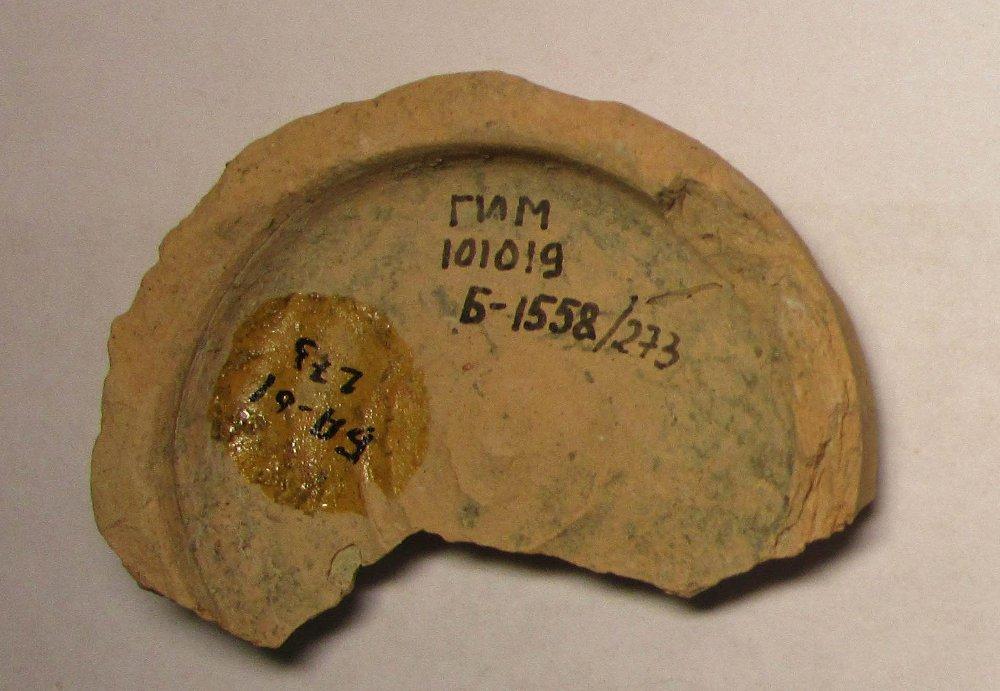 ГИМ
101019
Б-1558/273
БА-61
273